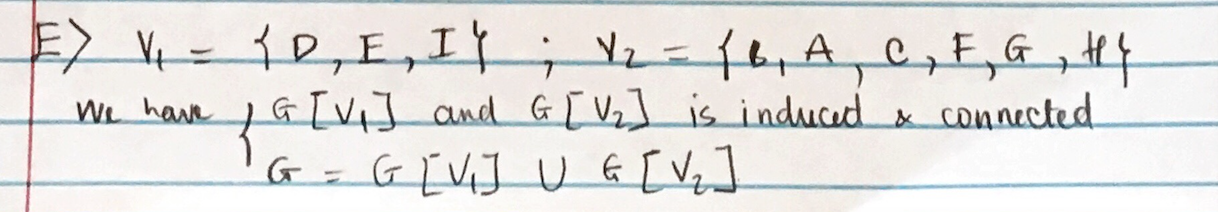 E> V₁ = {D, E, I} ; V₂ = {B, A, C, F, G, H}
We have { G[V₁] and G[V₂] is induced & connected
G = G[V₁] ∪ G[V₂]